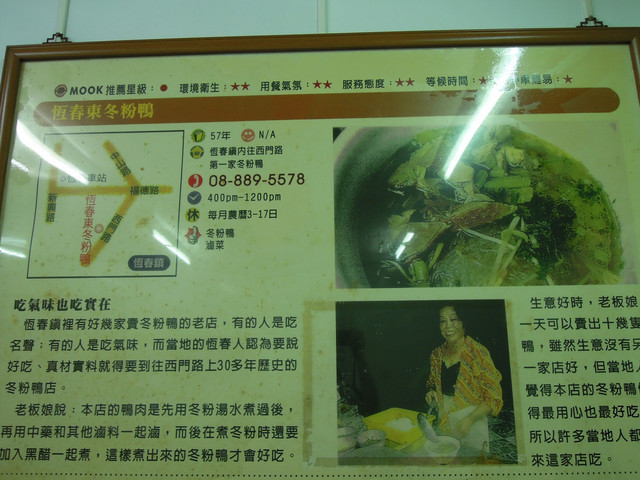 MOOK 推薦星級：● 環境衛生：★★ 用餐氣氛：★★ 服務態度：★★ 等候時間：★
恆春東冬粉鴨
車站
福德路
新興路
西門路
恆春東冬粉鴨
恆春鎮
57年 N/A
恆春鎮內往西門路
第一家冬粉鴨
08-889-5578
400pm-1200pm
休 每月農曆3-17日
冬粉鴨
滷菜
吃氣味也吃實在
恆春鎮裡有好幾家賣冬粉鴨的老店，有的人是吃
名聲；有的人是吃氣味，而當地的恆春人認為要說
好吃、真材實料就得要到往西門路上30多年歷史的
冬粉鴨店。
老板娘說：本店的鴨肉是先用冬粉湯水煮過後，
再用中藥和其他滷料一起滷，而後在煮冬粉時還要
加入黑醋一起煮，這樣煮出來的冬粉鴨才會好吃。
生意好時，老板娘
一天可以賣出十幾隻
鴨，雖然生意沒有另
一家店好，但當地人
覺得本店的冬粉鴨
得最用心也最好吃
所以許多當地人都
來這家店吃。